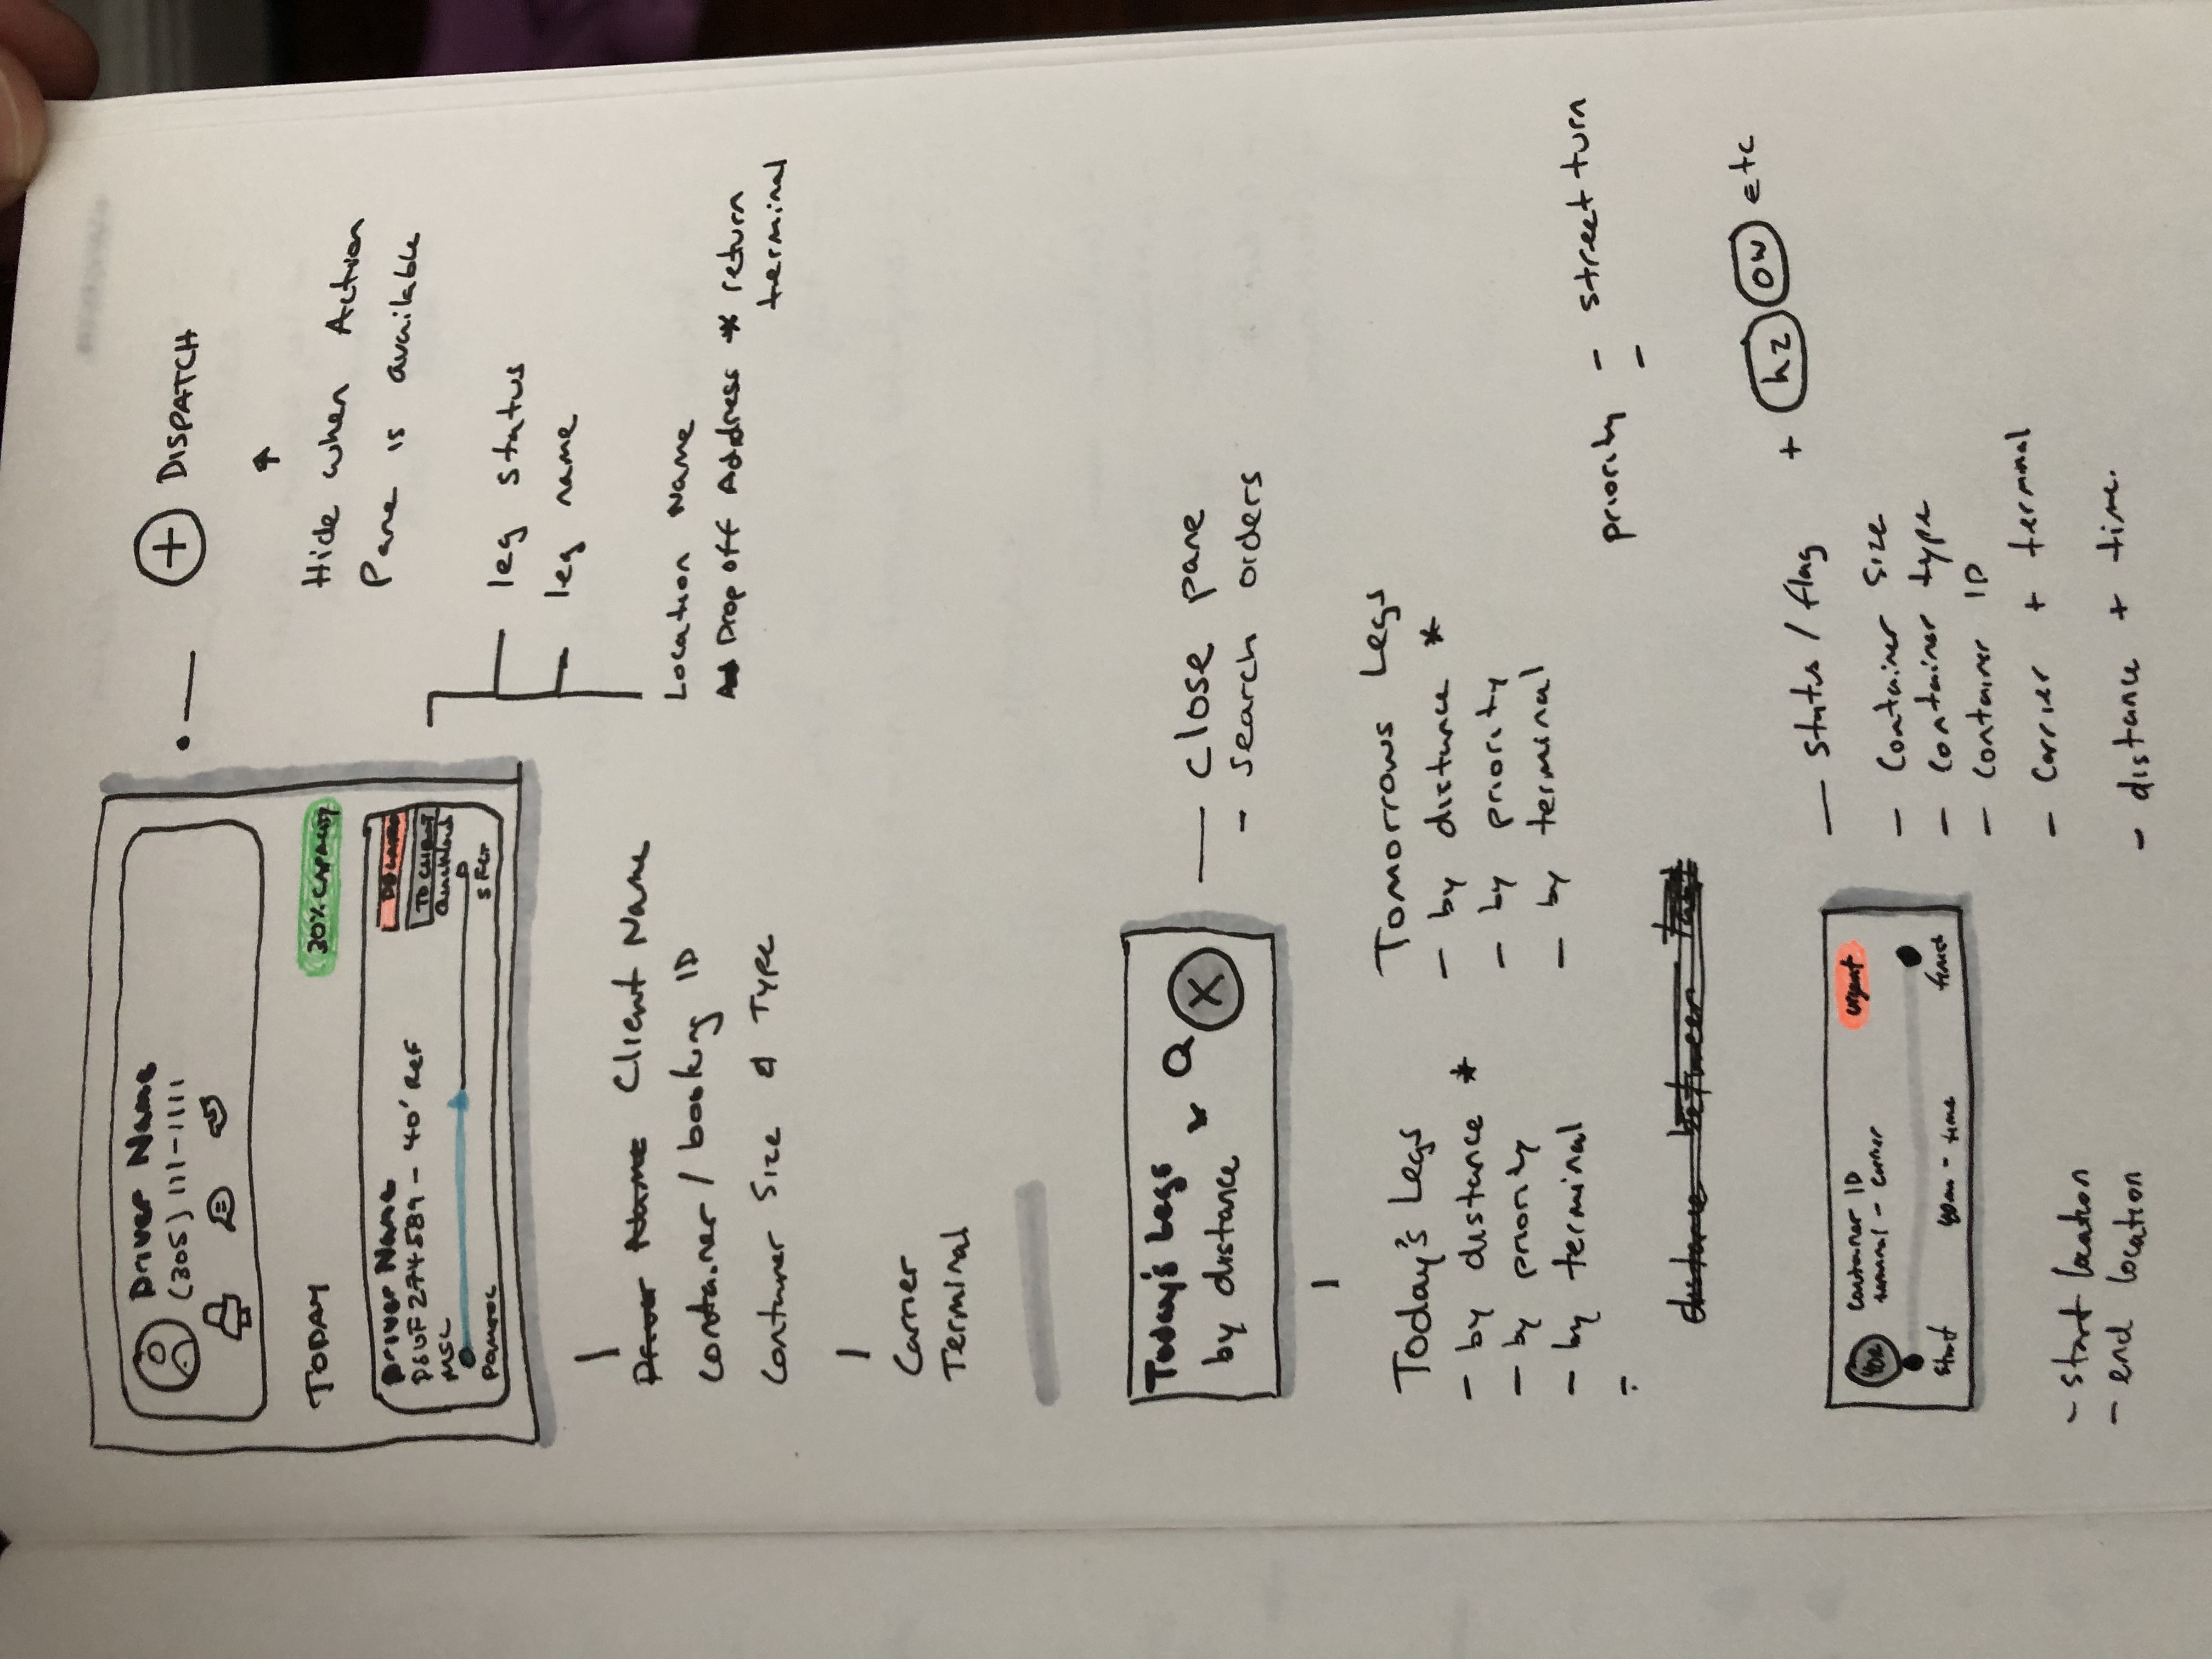 Driver Name
(305) 111-1111
TODAY
30% CAPACITY
Driver Name
DSUF274589 - 40' Ref
MSC
TO CLIENT
+ DISPATCH
Hide when Action
Pane is available
leg status
leg name
Location Name
Drop off Address * return
terminal
Driver Name Client Name
container/booking ID
Container Size & Type
Carrier
Terminal
Today's Legs
by distance
X
Close pane
- search orders
Today's Legs
- by distance *
- by priority
- by terminal
Tomorrows Legs
- by distance *
- by priority
- by terminal
priority - street turn
-
distance between
Container ID
terminal - carrier
urgent
start
time
finish
status/flag + hz OW etc
- Container size
- Container type
- Container ID
- Carrier + terminal
- distance + time.
- start location
- end location